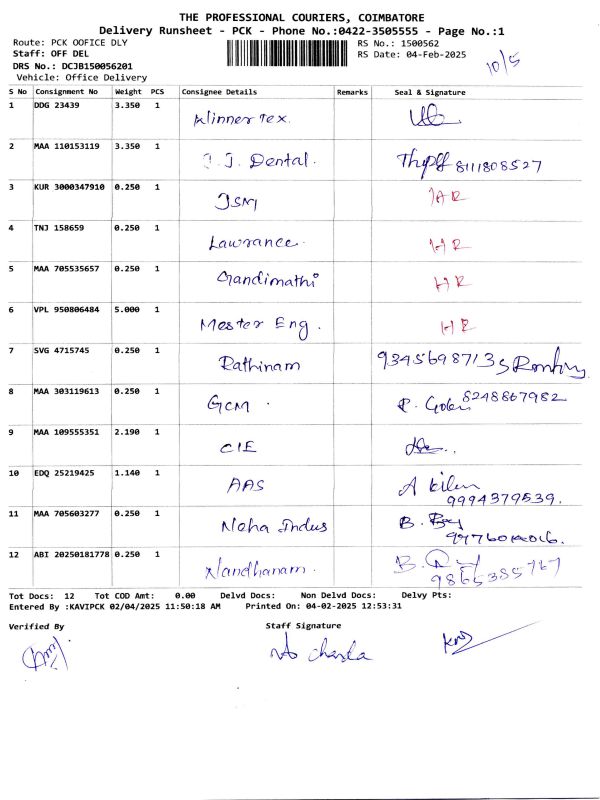 THE PROFESSIONAL COURIERS, COIMBATORE
Delivery Runsheet - PCK - Phone No.:0422-3505555 - Page No.:1
Route: PCK OOFICE DLY RS No.: 1500562
Staff: OFF DEL RS Date: 04-Feb-2025
10/5
DRS No.: DCJB150056201
Vehicle: Office Delivery
S No Consignment No Weight PCS Consignee Details Remarks Seal & Signature
1 DDG 23439 3.350 1 Klinner Tex.
2 MAA 110153119 3.350 1 J.J. Dental. 8111808527
3 KUR 3000347910 0.250 1 JSM HR
4 TNJ 158659 0.250 1 Lawrance. HR
5 MAA 705535657 0.250 1 Gandimathi HR
6 VPL 950806484 5.000 1 Mester Eng. HR
7 SVG 4715745 0.250 1 Rathinam 9345698713
8 MAA 303119613 0.250 1 GCM . 8248867982
9 MAA 109555351 2.190 1 CIE
10 EDQ 25219425 1.140 1 AAS Akilan 9994379539.
11 MAA 705603277 0.250 1 Neha Indus B.
12 ABI 20250181778 0.250 1 Nandhanam. B. 9865385767
Tot Docs: 12 Tot COD Amt: 0.00 Delvd Docs: Non Delvd Docs: Delvy Pts:
Entered By :KAVIPCK 02/04/2025 11:50:18 AM Printed On: 04-02-2025 12:53:31
Verified By Staff Signature